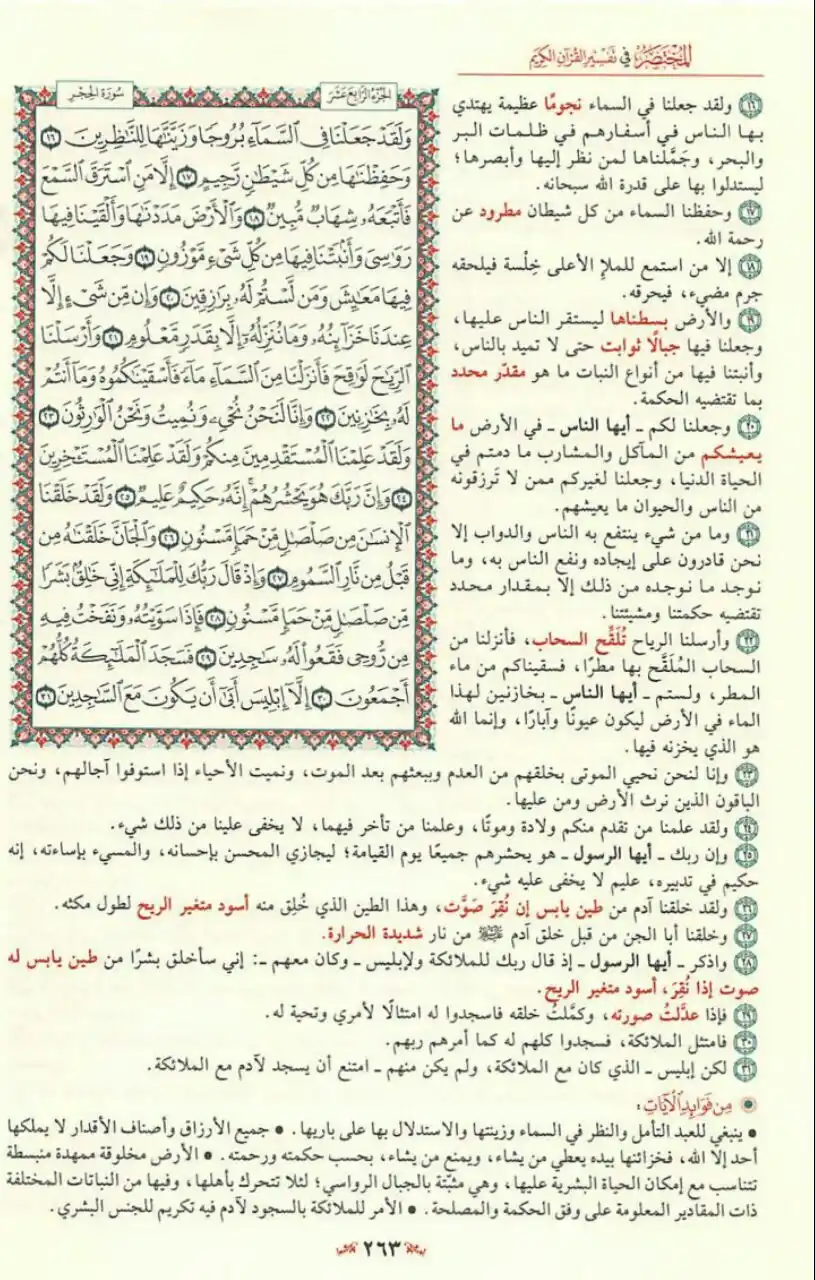 المُخْتَصَرُ فِي تَفْسِيرِ القُرْآنِ الكَرِيمِ
الجُزْءُ الرَّابِعَ عَشَرَ
سُورَةُ الحِجْرِ
وَلَقَدْ جَعَلْنَا فِي السَّمَاءِ بُرُوجًا وَزَيَّنَّاهَا لِلنَّاظِرِينَ ١٦
وَحَفِظْنَاهَا مِن كُلِّ شَيْطَانٍ رَّجِيمٍ ١٧ إِلَّا مَنِ اسْتَرَقَ السَّمْعَ
فَأَتْبَعَهُ شِهَابٌ مُّبِينٌ ١٨ وَالْأَرْضَ مَدَدْنَاهَا وَأَلْقَيْنَا فِيهَا
رَوَاسِيَ وَأَنبَتْنَا فِيهَا مِن كُلِّ شَيْءٍ مَّوْزُونٍ ١٩ وَجَعَلْنَا لَكُمْ
فِيهَا مَعَايِشَ وَمَن لَّسْتُمْ لَهُ بِرَازِقِينَ ٢٠ وَإِن مِّن شَيْءٍ إِلَّا
عِندَنَا خَزَائِنُهُ وَمَا نُنَزِّلُهُ إِلَّا بِقَدَرٍ مَّعْلُومٍ ٢١ وَأَرْسَلْنَا
الرِّيَاحَ لَوَاقِحَ فَأَنزَلْنَا مِنَ السَّمَاءِ مَاءً فَأَسْقَيْنَاكُمُوهُ وَمَا أَنتُمْ
لَهُ بِخَازِنِينَ ٢٢ وَإِنَّا لَنَحْنُ نُحْيِي وَنُمِيتُ وَنَحْنُ الْوَارِثُونَ ٢٣
وَلَقَدْ عَلِمْنَا الْمُسْتَقْدِمِينَ مِنكُمْ وَلَقَدْ عَلِمْنَا الْمُسْتَأْخِرِينَ
٢٤ وَإِنَّ رَبَّكَ هُوَ يَحْشُرُهُمْ إِنَّهُ حَكِيمٌ عَلِيمٌ ٢٥ وَلَقَدْ خَلَقْنَا
الْإِنسَانَ مِن صَلْصَالٍ مِّنْ حَمَإٍ مَّسْنُونٍ ٢٦ وَالْجَانَّ خَلَقْنَاهُ مِن
قَبْلُ مِن نَّارِ السَّمُومِ ٢٧ وَإِذْ قَالَ رَبُّكَ لِلْمَلَائِكَةِ إِنِّي خَالِقٌ بَشَرًا
مِّن صَلْصَالٍ مِّنْ حَمَإٍ مَّسْنُونٍ ٢٨ فَإِذَا سَوَّيْتُهُ وَنَفَخْتُ فِيهِ
مِن رُّوحِي فَقَعُوا لَهُ سَاجِدِينَ ٢٩ فَسَجَدَ الْمَلَائِكَةُ كُلُّهُمْ
أَجْمَعُونَ ٣٠ إِلَّا إِبْلِيسَ أَبَىٰ أَن يَكُونَ مَعَ السَّاجِدِينَ ٣١
١٦ ولقد جعلنا في السماء نجومًا عظيمة يهتدي
بها الناس في أسفارهم في ظلمات البر
والبحر، وجَمَّلناها لمن نظر إليها وأبصرها؛
ليستدلوا بها على قدرة الله سبحانه.
١٧ وحفظنا السماء من كل شيطان مطرود عن
رحمة الله.
١٨ إلا من استمع للملإ الأعلى خِلْسة فيلحقه
جرم مضيء، فيحرقه.
١٩ والأرض بسطناها ليستقر الناس عليها،
وجعلنا فيها جبالًا ثوابت حتى لا تميد بالناس،
وأنبتنا فيها من أنواع النبات ما هو مقدّر محدد
بما تقتضيه الحكمة.
٢٠ وجعلنا لكم ـ أيها الناس ـ في الأرض ما
يعيشكم من المآكل والمشارب ما دمتم في
الحياة الدنيا، وجعلنا لغيركم ممن لا تَرزقونه
من الناس والحيوان ما يعيشهم.
٢١ وما من شيء ينتفع به الناس والدواب إلا
نحن قادرون على إيجاده ونفع الناس به، وما
نوجد ما نوجده من ذلك إلا بمقدار محدد
تقتضيه حكمتنا ومشيئتنا.
٢٢ وأرسلنا الرياح تُلَقِّح السحاب، فأنزلنا من
السحاب المُلَقَّح بها مطرًا، فسقيناكم من ماء
المطر، ولستم ـ أيها الناس ـ بخازنين لهذا
الماء في الأرض ليكون عيونًا وآبارًا، وإنما الله
هو الذي يخزنه فيها.
٢٣ وإنا لنحن نحيي الموتى بخلقهم من العدم وببعثهم بعد الموت، ونميت الأحياء إذا استوفوا آجالهم، ونحن
الباقون الذين نرث الأرض ومن عليها.
٢٤ ولقد علمنا من تقدم منكم ولادة وموتًا، وعلمنا من تأخر فيهما، لا يخفى علينا من ذلك شيء.
٢٥ وإن ربك ـ أيها الرسول ـ هو يحشرهم جميعًا يوم القيامة؛ ليجازي المحسن بإحسانه، والمسيء بإساءته، إنه
حكيم في تدبيره، عليم لا يخفى عليه شيء.
٢٦ ولقد خلقنا آدم من طين يابس إن نُقِرَ صَوَّت، وهذا الطين الذي خُلِق منه أسود متغير الريح لطول مكثه.
٢٧ وخلقنا أبا الجن من قبل خلق آدم ﷺ من نار شديدة الحرارة.
٢٨ واذكر ـ أيها الرسول ـ إذ قال ربك للملائكة ولإبليس ـ وكان معهم ـ: إني سأخلق بشرًا من طين يابس له
صوت إذا نُقِرَ، أسود متغير الريح.
٢٩ فإذا عدَّلتُ صورته، وكمَّلتُ خلقه فاسجدوا له امتثالًا لأمري وتحية له.
٣٠ فامتثل الملائكة، فسجدوا كلهم له كما أمرهم ربهم.
٣١ لكن إبليس ـ الذي كان مع الملائكة، ولم يكن منهم ـ امتنع أن يسجد لآدم مع الملائكة.
مِن فَوَائِدِ الآيَاتِ:
• ينبغي للعبد التأمل والنظر في السماء وزينتها والاستدلال بها على باريها. • جميع الأرزاق وأصناف الأقدار لا يملكها
أحد إلا الله، فخزائنها بيده يعطي من يشاء، ويمنع من يشاء، بحسب حكمته ورحمته. • الأرض مخلوقة ممهدة منبسطة
تتناسب مع إمكان الحياة البشرية عليها، وهي مثبّتة بالجبال الرواسي؛ لئلا تتحرك بأهلها، وفيها من النباتات المختلفة
ذات المقادير المعلومة على وفق الحكمة والمصلحة. • الأمر للملائكة بالسجود لآدم فيه تكريم للجنس البشري.
٢٦٣